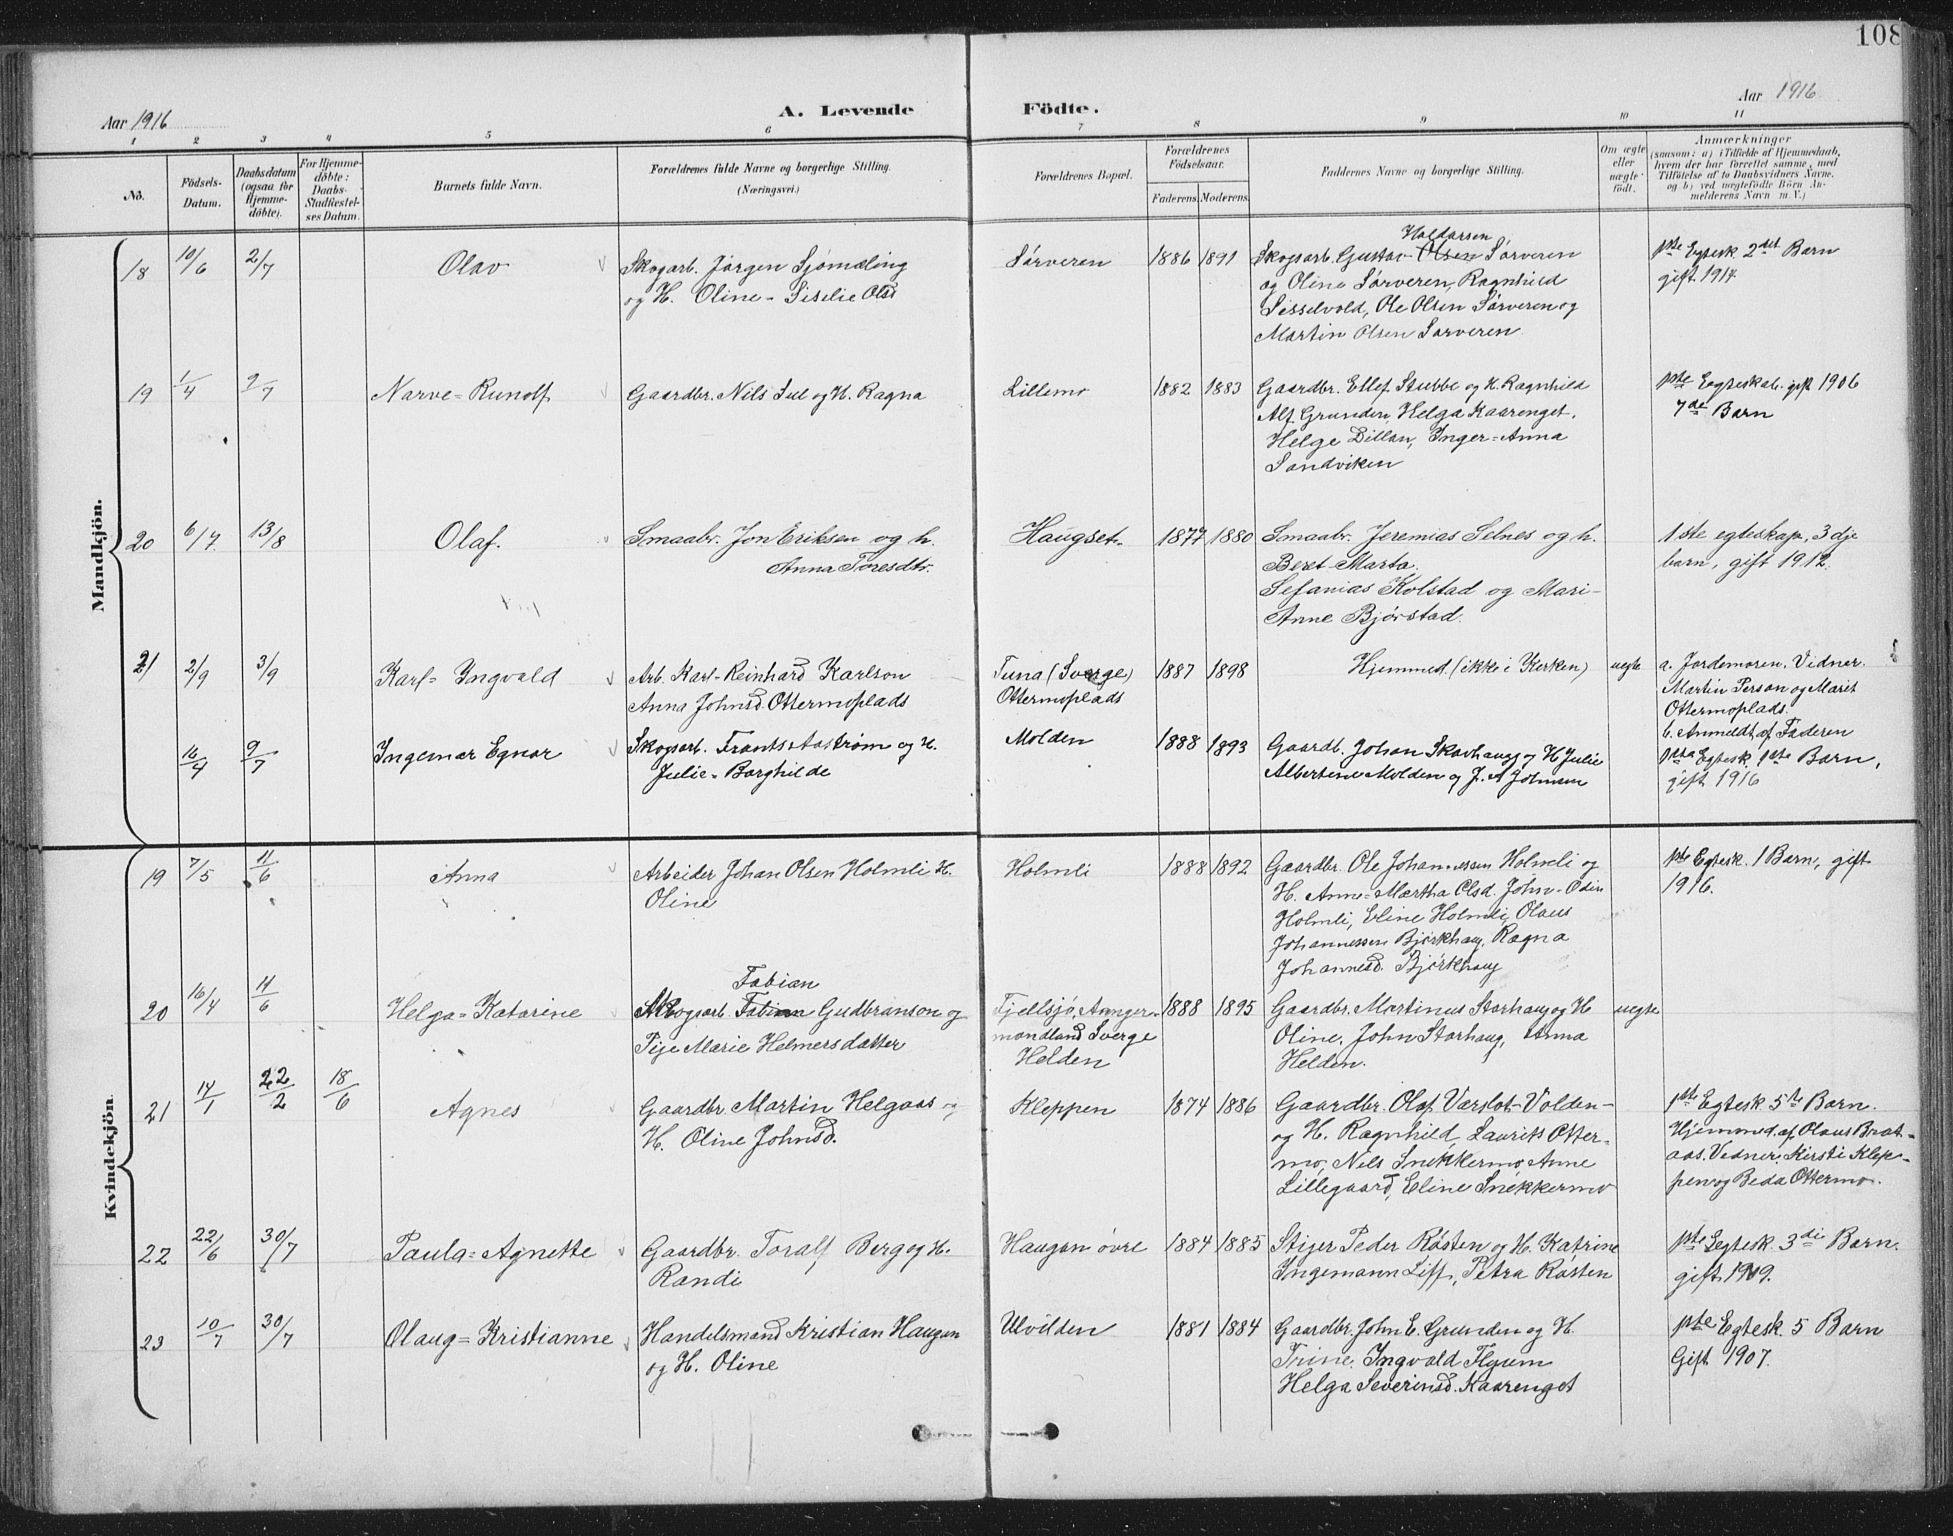 108
Aar 1916
A. Levende Födte.
Aar 1916
1 2 3 4 5 6 7 8 9 10 11
No.
Födsels-Datum.
Daabsdatum (ogsaa for Hjemmedöbte).
For Hjemmedöbte: Daabs-Stadfæstelses Datum.
Barnets fulde Navn.
Forældrenes fulde Navne og borgerlige Stilling.
(Næringsvei.)
Forældrenes Bopæl.
Forældrenes Födselsaar.
Faderens. Moderens.
Faddernes Navne og borgerlige Stilling.
Om ægte eller uægte født.
Anmærkninger
(saasom: a) i Tilfælde af Hjemmedaab,
hvem der har forrettet samme, med
Tilföielse af to Daabsvidners Navne.
og b) ved uægtefödte Börn An-
melderens Navn m.V.)
Mandkjön.
18 10/6 2/7 Olav
Skogsarb. Jørgen Sjømæling
og H. Oline-Siselie Olsd
Sørveren 1886 1891
Haldorsen
Skogsarb. Gustav Olsen Sørveren
og Oline Sørveren, Ragnhild
Sisselvold, Ole Olsen Sørveren og
Martin Olsen Sørveren
1ste Egtesk. 2det Barn
gift 1914
19 1/4 9/7 Narve=Runolf
Gaardbr. Nils Lul og H. Ragna
Lillemo 1882 1883
Gaardbr. Ellef Stubbe og H. Ragnhild
Alf Grunden, Helga Kaarenget,
Helge Dillan, Inger=Anna
Sandviken
1ste Eegteskab. gift 1906
7de Barn
20 6/7 13/8 Olaf.
Smaabr. Jon Eriksen og h.
Anna Toresdtr.
Haugset 1877 1880
Smaabr. Jeremias Selnes og h.
Beret-Marta.
Sefanias Kolstad og Mari-
Anne Bjørstad.
1ste egteskap, 3dje
barn, gift 1912.
21 2/9 3/9 Karl=Ingvald
Arb. Karl-Reinhard Karlson
Anna Johnsd. Ottermoplads
Tuna (Sverge)
Ottermoplads
1887 1898
Hjemmed. (ikke i Kerken) uegte
a. Jordemoren. Vidner.
Martin Person og Marit
Ottermoplads.
b. Anmeldt af Faderen
16/4 9/7 Ingemar Egnar
Skogsarb. Frants Aastrøm og H.
Julie-Borghilde
Molden 1888 1893
Gaardb. Johan Skavhaug og H Julie
Albertine Molden og J. A Johnsen
1ste Egtesk. 1ste Barn,
gift 1916
Kvindekjön.
19 7/5 11/6 Anna
Arbeider Johan Olsen Holmli H.
Oline
Holmli 1888 1892
Gaardbr. Ole Johannessen Holmli og
H. Anne=Martha Olsd. John-Odin
Holmli, Eline Holmli, Olaus
Johannessen Bjørkhaug, Ragna
Johannesd. Bjørkhaug
1ste Egtesk. 1 Barn, gift
1916.
20 16/4 11/6 Helga=Katarine
Fabian
Skogsarb. Fabian Gudbranson og
Pige Marie Helmersdatter
Fjellsjø, Annger-
mandland Sverge
Helden
1888 1895
Gaardbr. Martinus Storhaug og H
Oline, John Storhaug, Anna
Helden.
uegte
21 14/1 22/2 18/6 Agnes
Gaardbr. Martin Helgaas og
H. Oline Johnsd.
Kleppen 1874 1886
Gaardbr. Olaf Værslot-Volden-
og H. Ragnhild, Laurits Otter-
mo, Nils Snekkermo, Anne
Lillegaard, Eline Snekkermo
1ste Egtesk. 5te Barn.
Hjemmed. af Olaus Brat-
aas. Vidner. Kirsti Klep-
pen og Beda Ottermo.
22 22/6 30/7 Paula=Agnette
Gaardbr. Toralf Berg og H.
Randi
Haugan øvre 1884 1885
Stiger Peder Røsten og H. Katrine
Ingemann Liff, Petra Røsten
1ste Eegtesk. 3di Barn.
gift 1909.
23 10/7 30/7 Olaug=Kristianne
Handelsmand Kristian Haugan
og H. Oline
Ulvilden 1881 1884
Gaardbr. John E. Grunden og H.
Trine. Ingvald Flyum
Helga Severinsd. Kaarenget
1ste Egtesk. 5 Barn
Gift 1907.